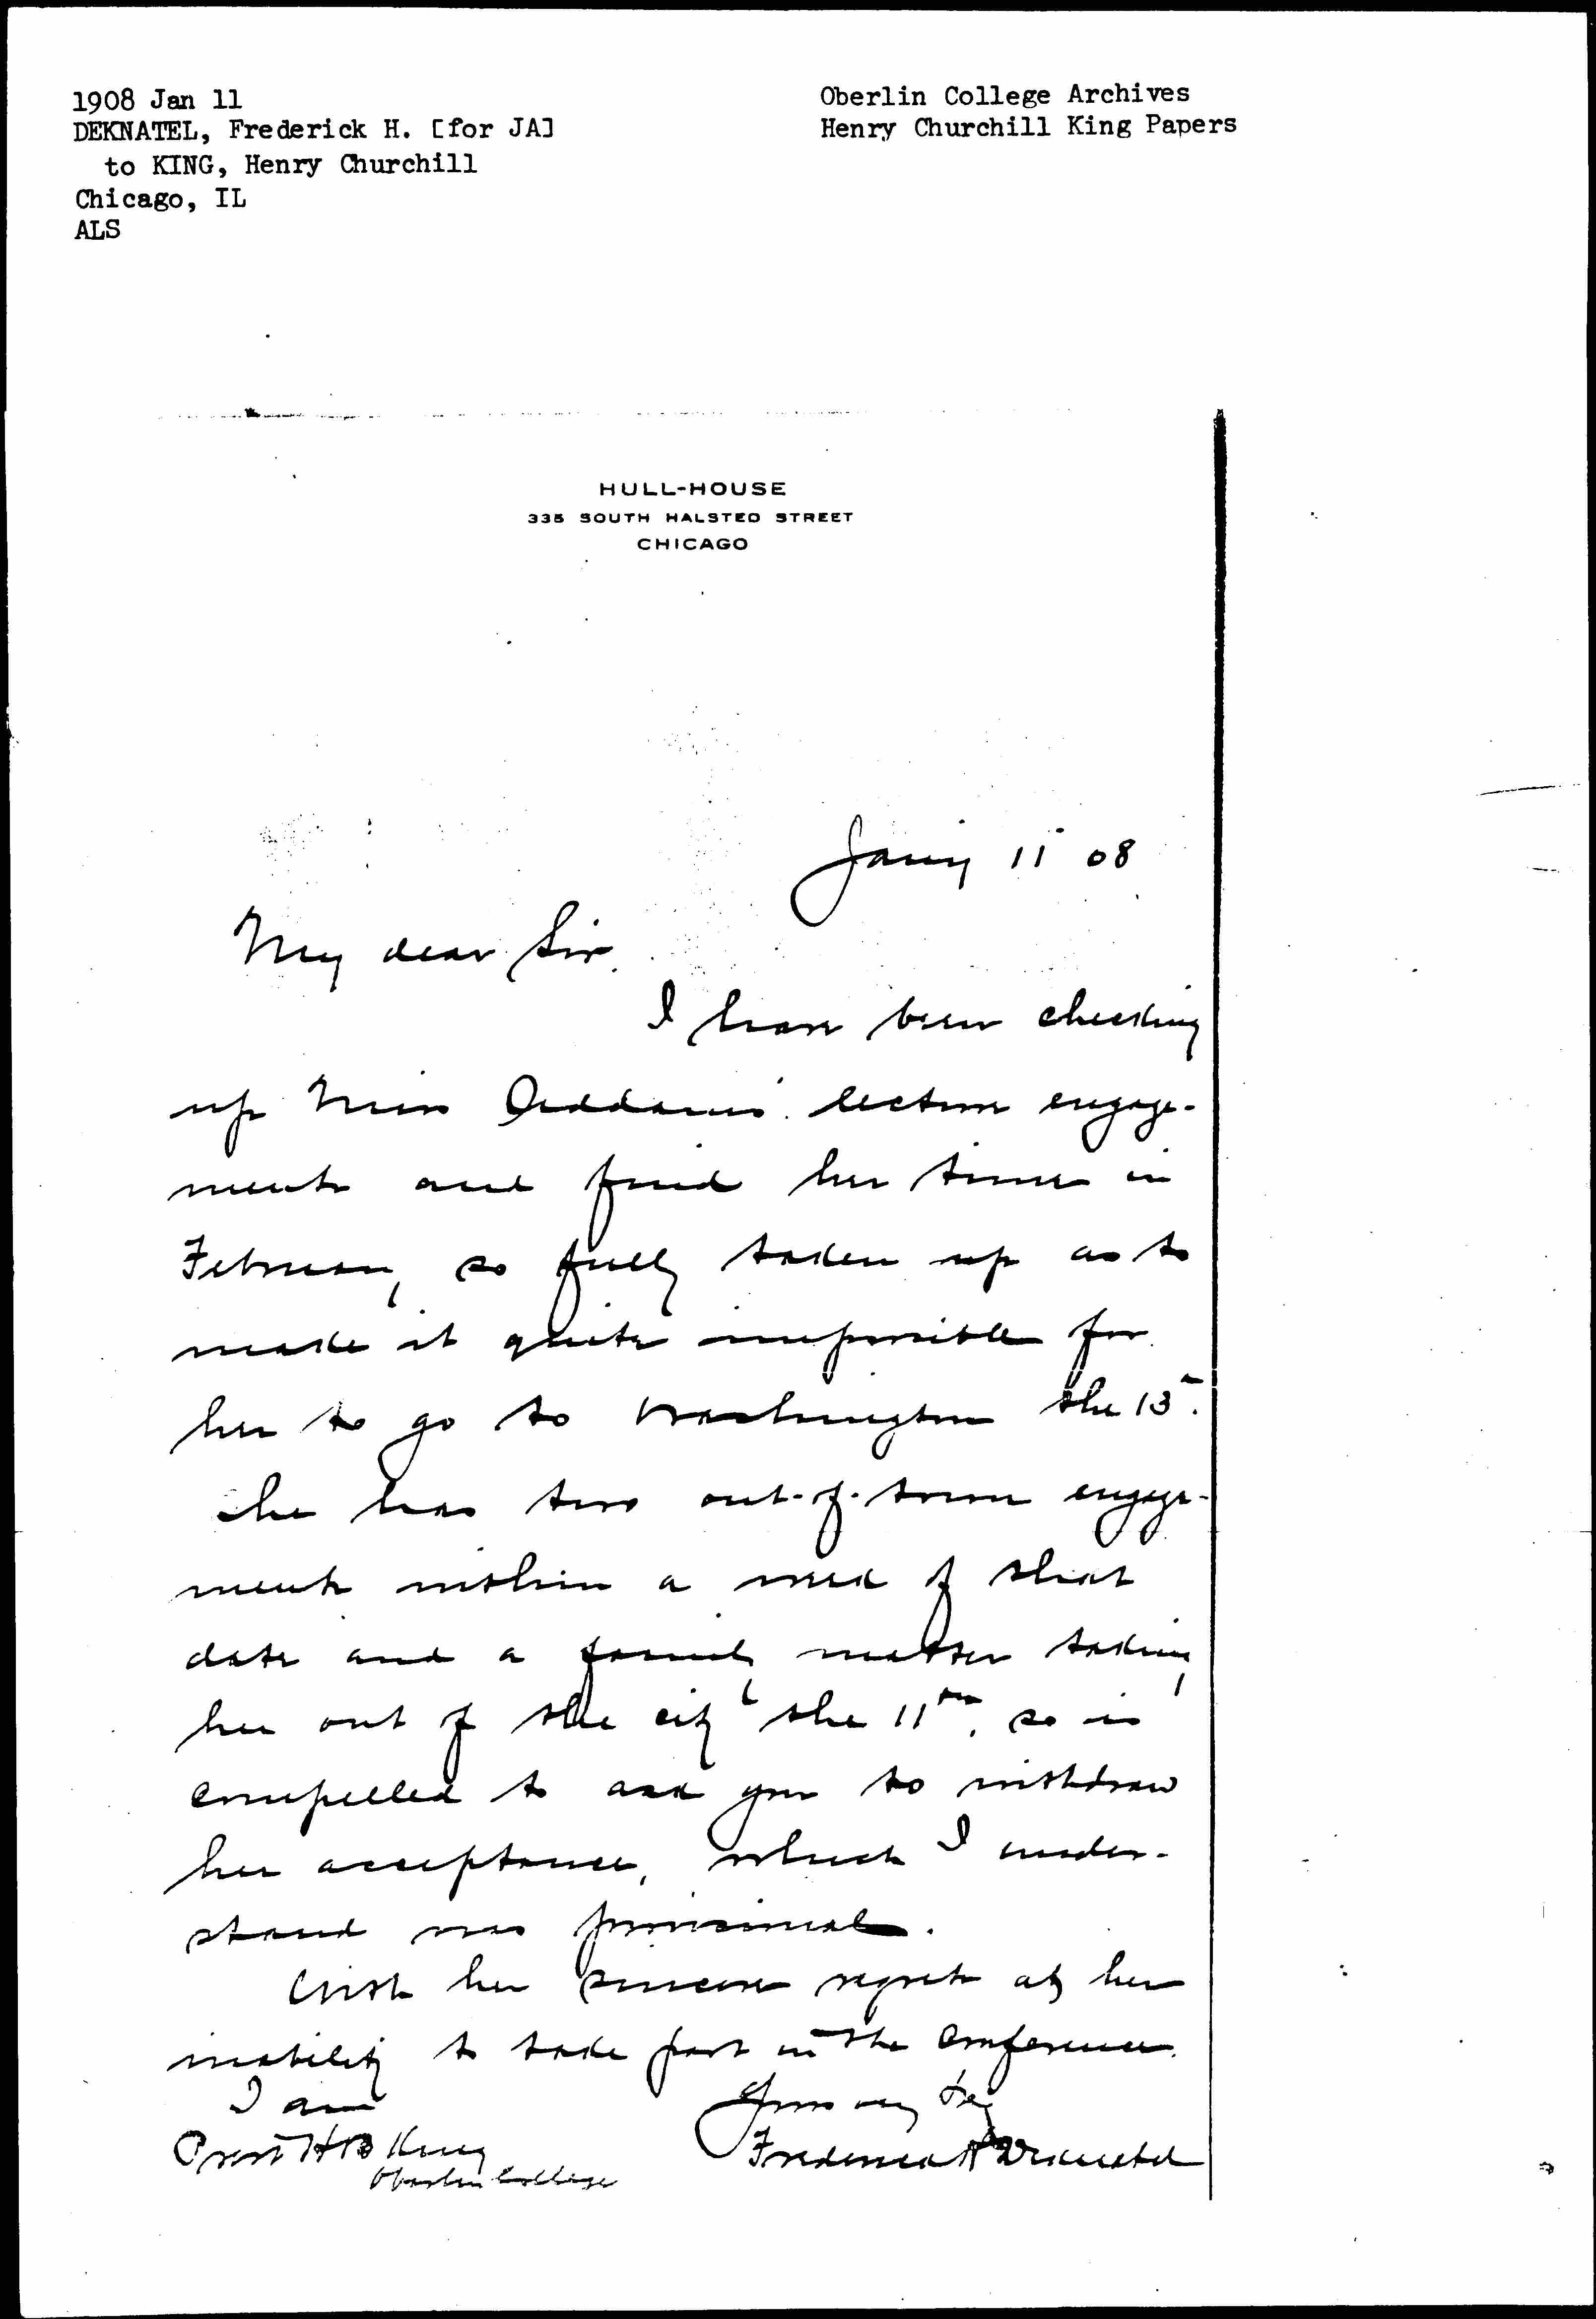 1908 Jan 11
DEKNATEL, Frederick H. [for JA]
to KING, Henry Churchill
Chicago, IL
ALS
Oberlin College Archives
Henry Churchill King Papers
HULL-HOUSE
335 SOUTH HALSTED STREET
CHICAGO
Jany 11 08
My dear Sir,
I have been checking
up Miss Addams' lecture engage-
ments and find her time in
February so fully taken up as to
make it quite impossible for
her to go to Washington the 13th.
She has two out-of-town engage-
ments within a week of that
date and a family matter taking
her out of the city the 11th, so is
compelled to ask you to withdraw
her acceptance, which I under-
stand was provisional.
With her sincere regrets at her
inability to take part in the conference.
I am
Yours very try
Prest H B King
Oberlin College
Frederick H Deknatel